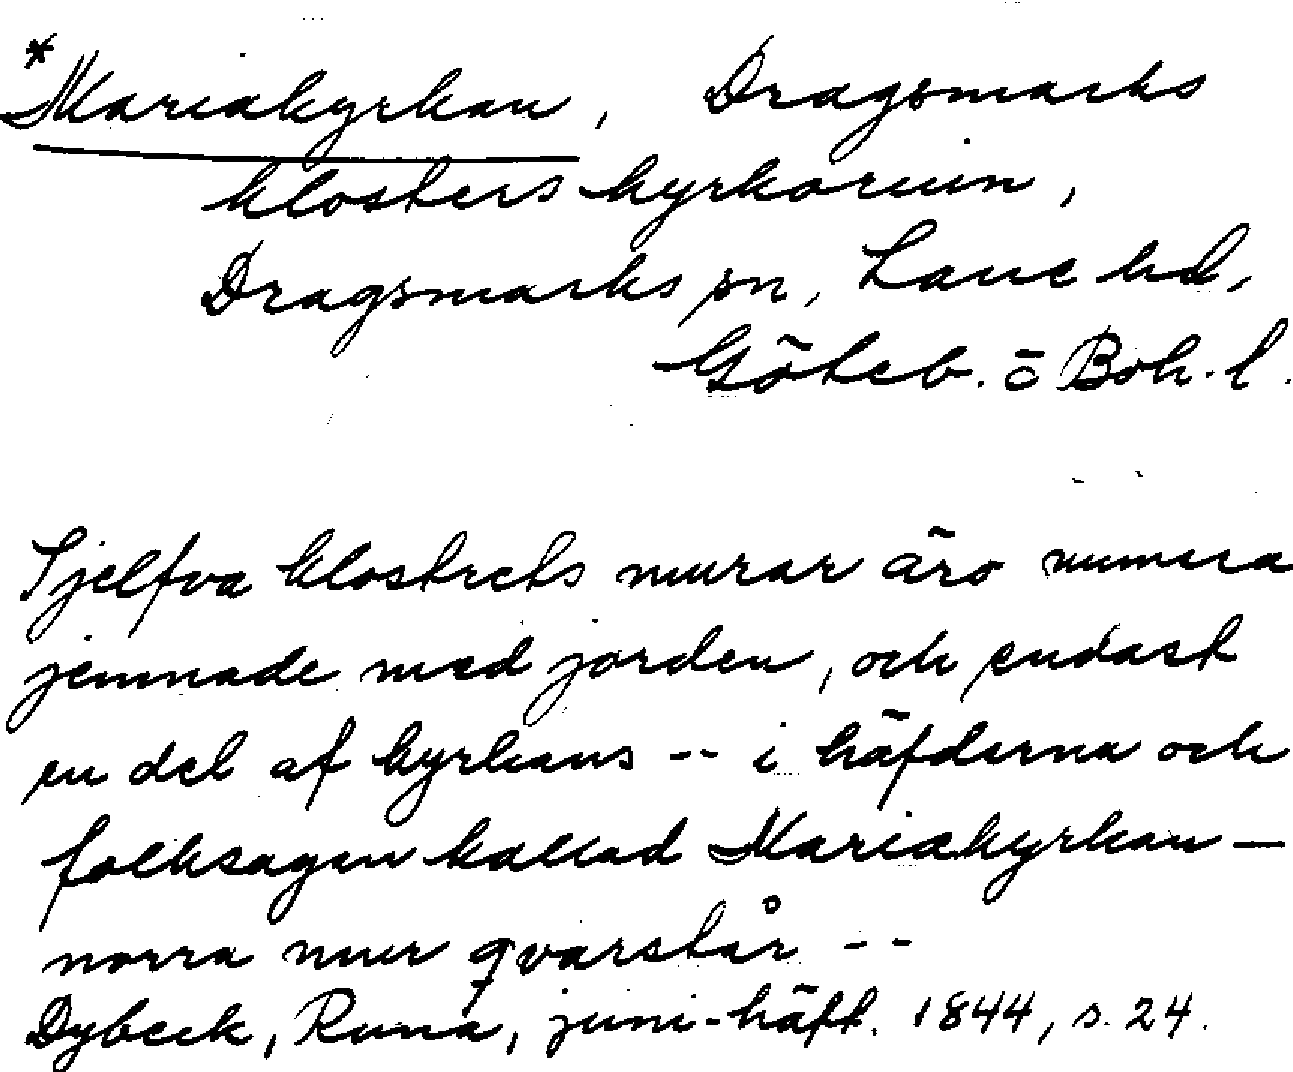 *Mariakyrkan, Dragsmarks
klosters kyrkoruin,
Dragsmarks sn, Lane hd,
Göteb. o Boh. l.
Sjelfva klostrets murar äro numera
jemnade med jorden, och endast
en del af kyrkans -- i häfderna och
folksagan kallad Mariakyrkan —
norra mur qvarstår --
Dybeck, Runa, juni-häft. 1844, s. 24.